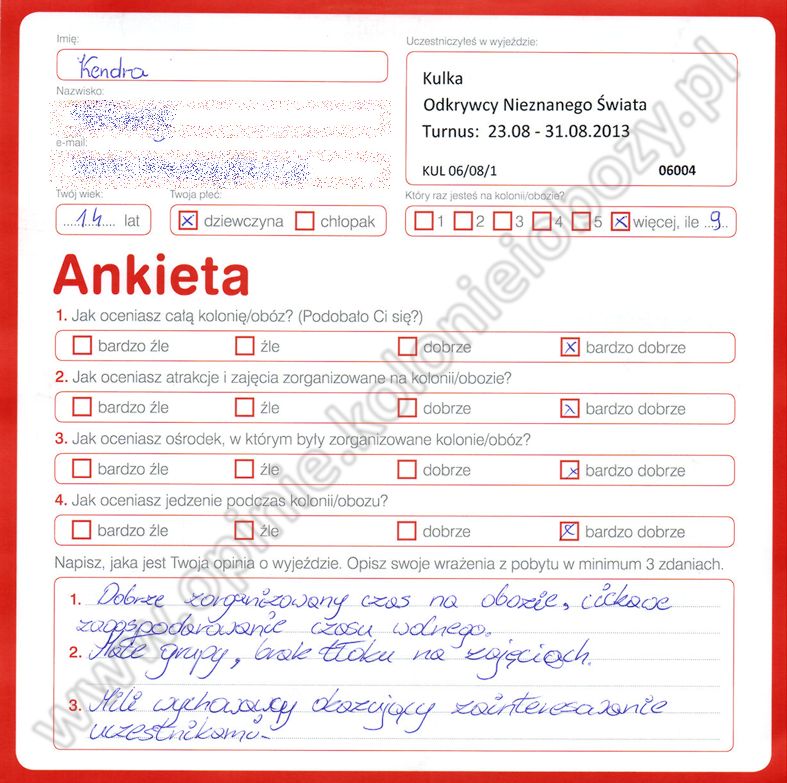 Imię:
Kendra
Uczestniczyłeś w wyjeździe:
Kulka
Odkrywcy Nieznanego Świata
Turnus: 23.08 - 31.08.2013
KUL 06/08/1 06004
Nazwisko:
e-mail:
Twój wiek:
14 lat
Twoja płeć:
dziewczyna chłopak
Który raz jesteś na kolonii/obozie?
1 2 3 4 5 więcej, ile 9
Ankieta
1. Jak oceniasz całą kolonię/obóz? (Podobało Ci się?)
bardzo źle źle dobrze bardzo dobrze
2. Jak oceniasz atrakcje i zajęcia zorganizowane na kolonii/obozie?
bardzo źle źle dobrze bardzo dobrze
3. Jak oceniasz ośrodek, w którym były zorganizowane kolonie/obóz?
bardzo źle źle dobrze bardzo dobrze
4. Jak oceniasz jedzenie podczas kolonii/obozu?
bardzo źle źle dobrze bardzo dobrze
Napisz, jaka jest Twoja opinia o wyjeździe. Opisz swoje wrażenia z pobytu w minimum 3 zdaniach.
1. Dobrze zorganizowany czas na obozie, ciekawe
zagospodarowanie czasu wolnego.
2. Małe grupy, brak tłoku na zajęciach.
3. Mili wychowawcy okazujący zainteresowanie
uczestnikami.
www.opinie.kolonieiobozy.pl